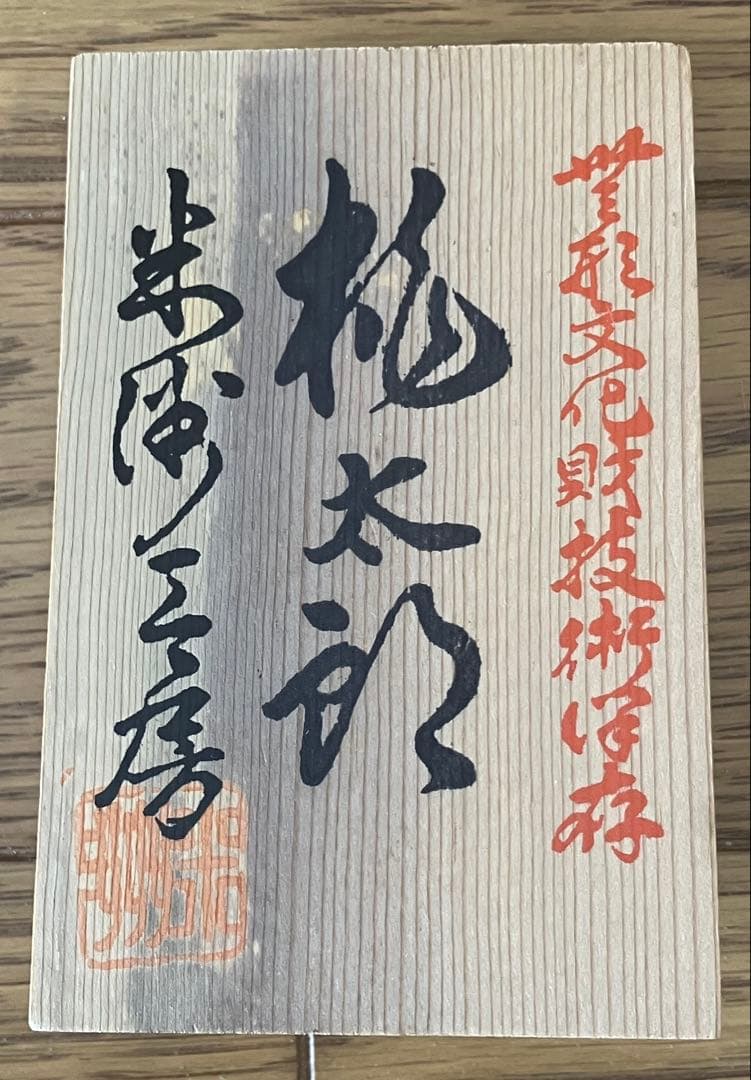 無形文化財技術保存
桃太郎
米洲工房
米洲